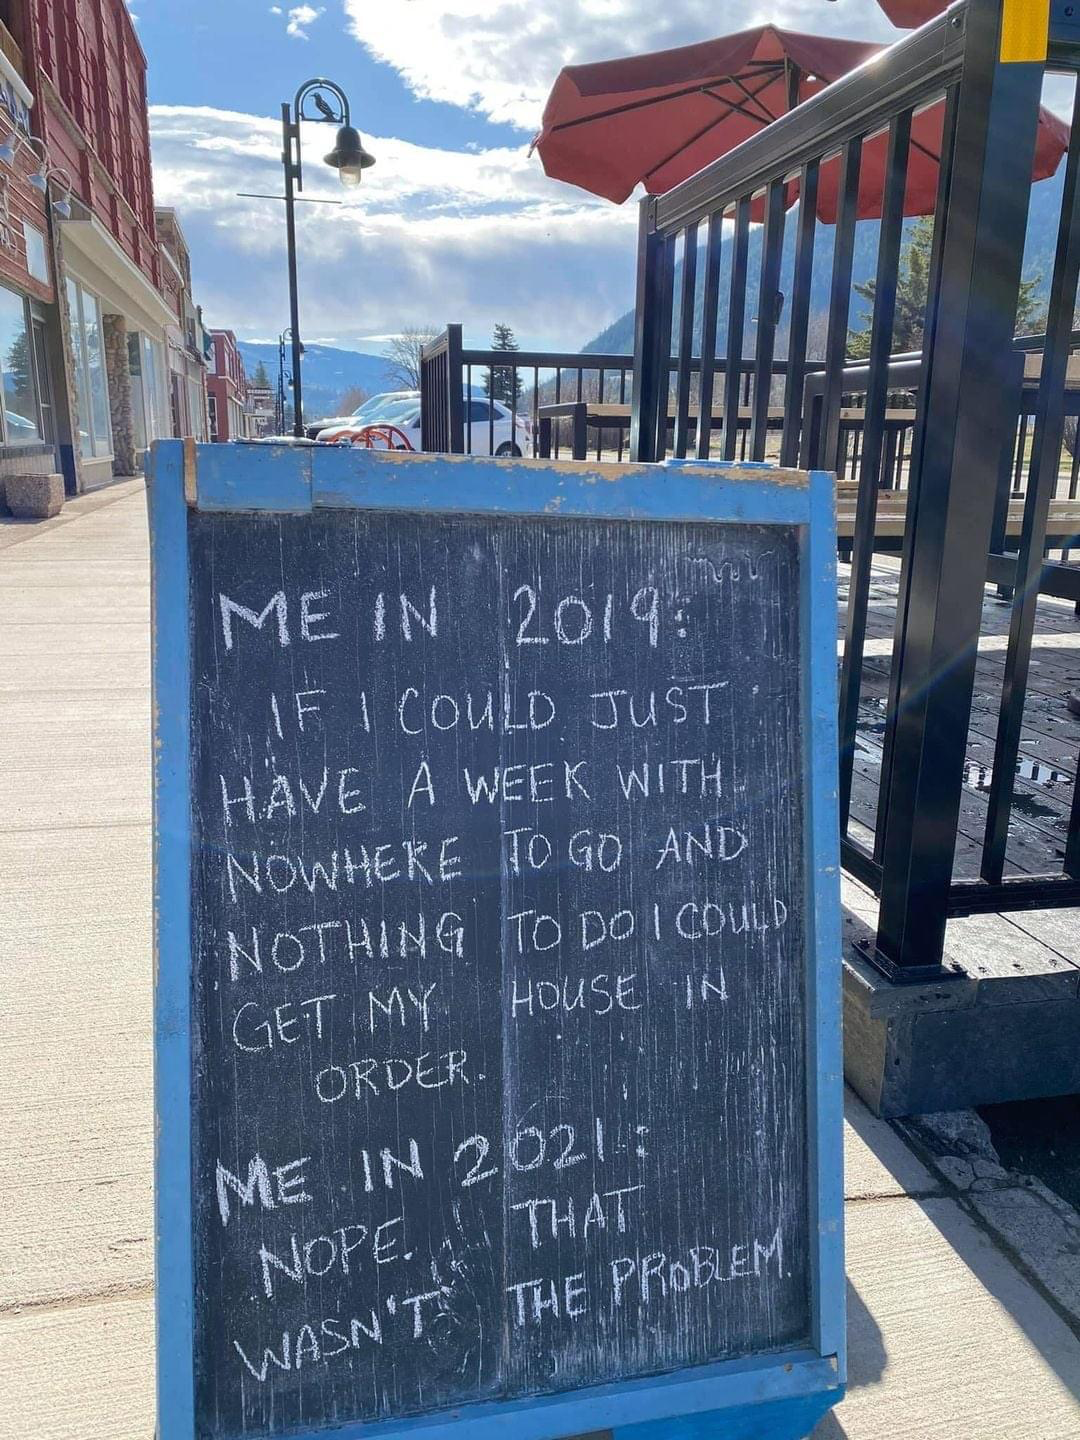 ME IN 2019:
IF I COULD JUST
HAVE A WEEK WITH
NOWHERE TO GO AND
NOTHING TO DO I COULD
GET MY HOUSE IN
ORDER.
ME IN 2021:
NOPE. THAT
WASN'T THE PROBLEM.